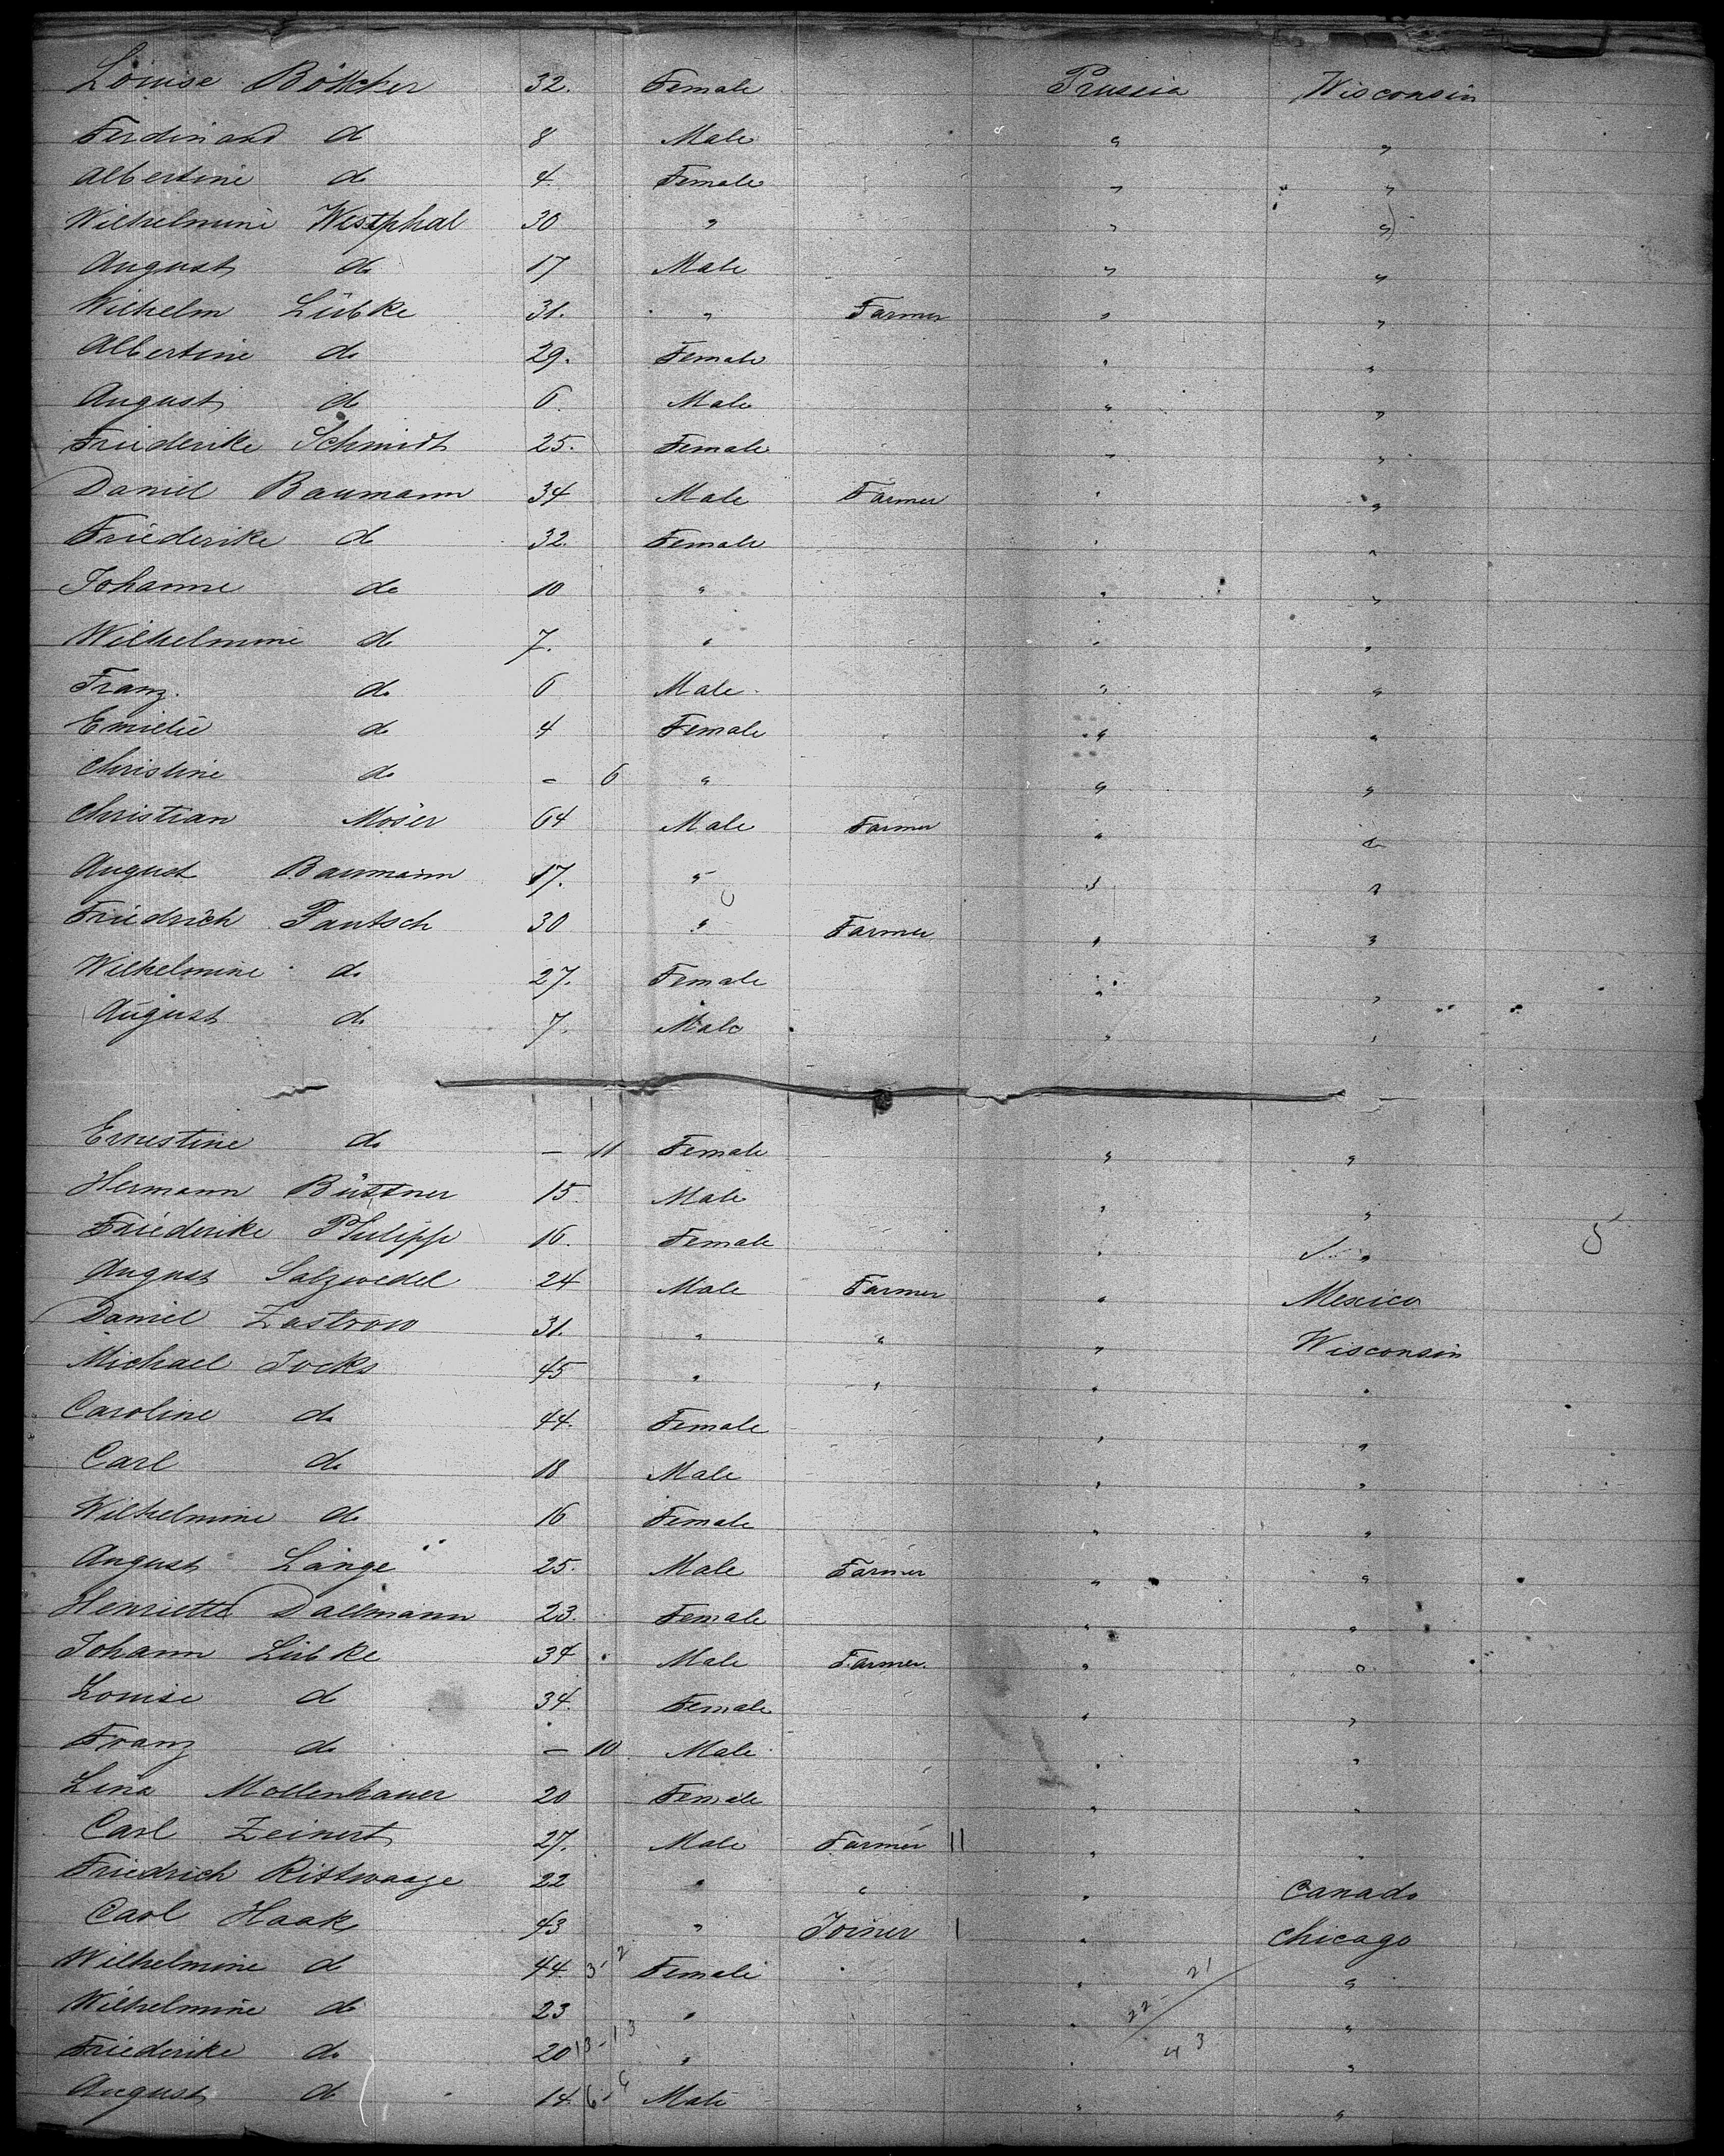 Louise Böttcher 32. Female Prussia Wisconsin
Ferdinand do 8 Male " "
Albertine do 4. Female " "
Wilhelmine Westphal 30 " " "
August do 17 Male " "
Wilhelm Lübke 31. " Farmer " "
Albertine do 29. Female " "
August do 6. Male " "
Friederike Schmidt 25. Female " "
Daniel Baumann 34 Male Farmer " "
Friederike do 32. Female " "
Johanne do 10 " " "
Wilhelmine do 7. " " "
Franz do 6 Male " "
Emilie do 4 Female " "
Christine do - 6 " " "
Christian Möser 64 Male Farmer " "
August Baumann 17. " " "
Friedrich Pautsch 30 " Farmer " "
Wilhelmine do 27. Female " "
August do 7. Male " "
Ernestine do - 11 Female " "
Hermann Büttner 15. Male " "
Friederike Philipp 16. Female " " 5
August Salzwedel 24 Male Farmer " Mexico
Daniel Zastrow 31. " " " Wisconsin
Michael Jocks 45 " " " "
Caroline do 44. Female " "
Carl do 18 Male " "
Wilhelmine do 16 Female " "
August Lange 25. Male Farmer " "
Henriette Dallmann 23. Female " "
Johann Lübke 34 Male Farmer " "
Louise do 34. Female " "
Franz do - 10 Male " "
Lina Mollenhauer 20 Female " "
Carl Zeinert 27. Male Farmer 11 " "
Friedrich Rittwaage 22 " " " Canada
Carl Haak 43 " Joiner 1 " Chicago
Wilhelmine do 44. 3 - 2 Female " 21 "
Wilhelmine do 23 " " 22 "
Friederike do 20 13 - 13 " " 43 "
August do 14 6 - 6 Male " "